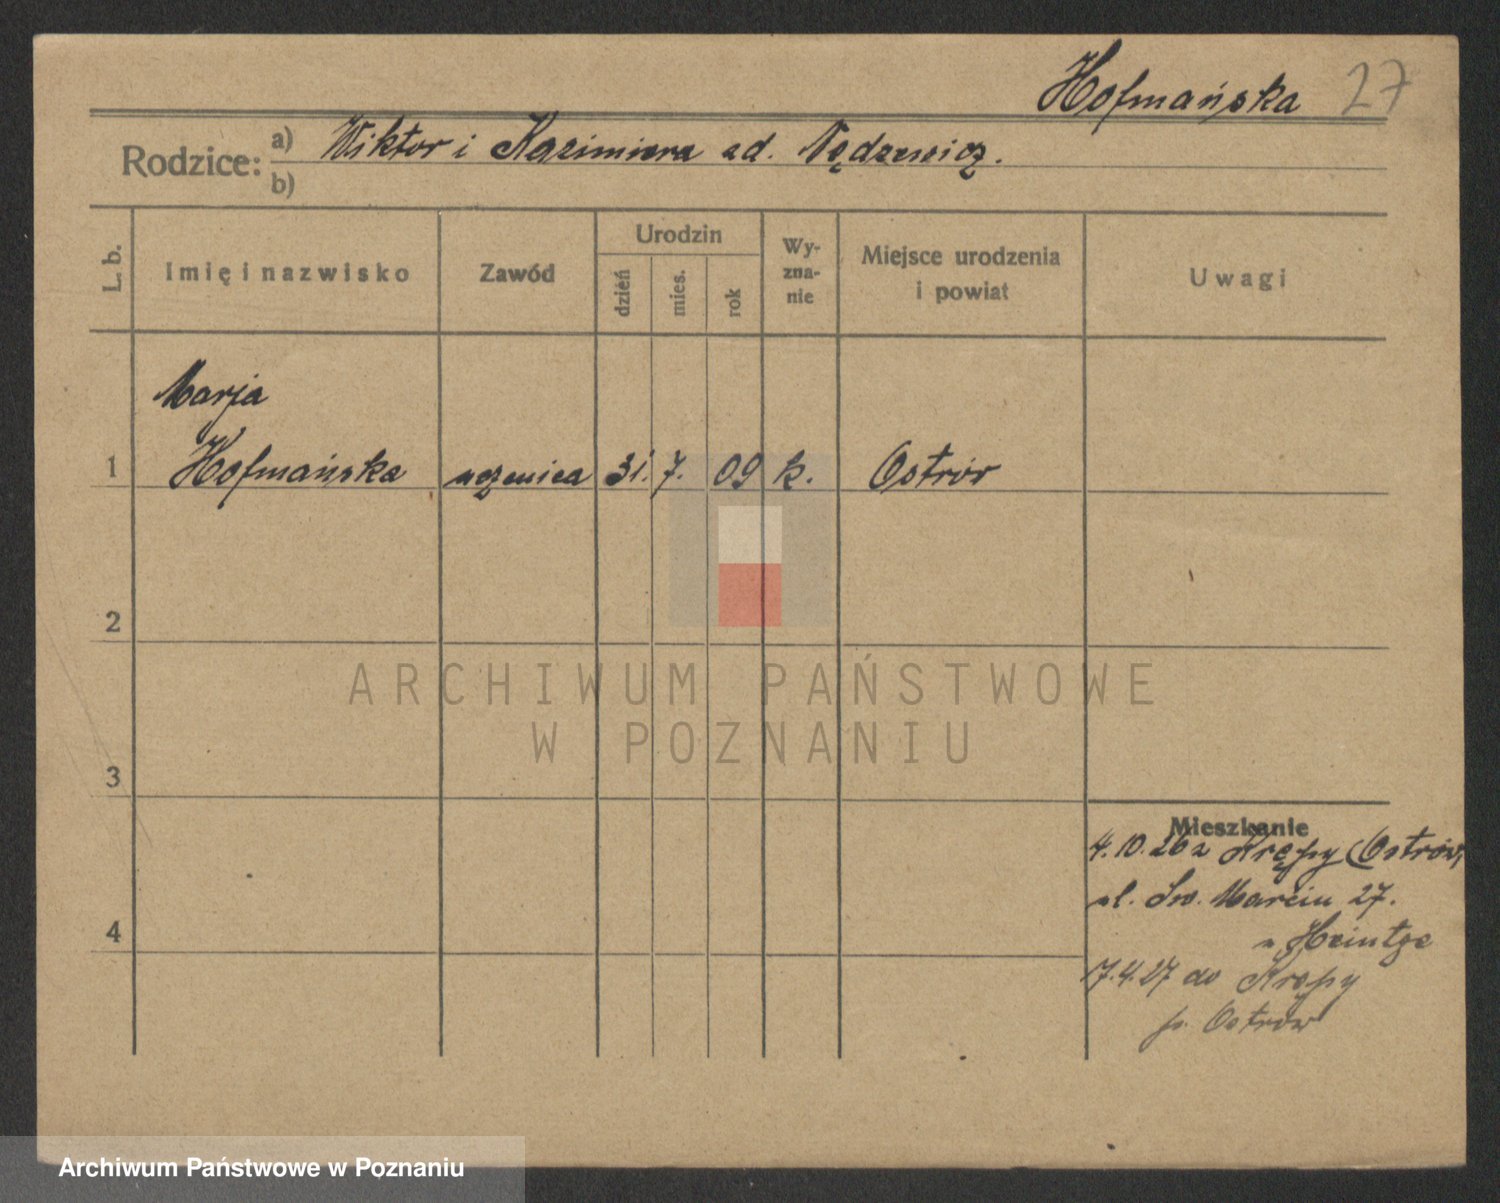 Hofmańska 27
Rodzice: a) Wiktor i Kazimiera zd. Nędzewicz.
b)
L. b.
Imię i nazwisko
Zawód
Urodzin
dzień
mies.
rok
Wy-
zna-
nie
Miejsce urodzenia
i powiat
Uwagi
Marja
1 Hofmańska uczenica 31. 7. 09 k. Ostrów
2
3
4
Mieszkanie
4.10.26 z Krępy (Ostrów,
ul. Św. Marcin 27.
u Heintze
7.4.27 do Krępy
p. Ostrów
ARCHIWUM PAŃSTWOWE
W POZNANIU
Archiwum Państwowe w Poznaniu